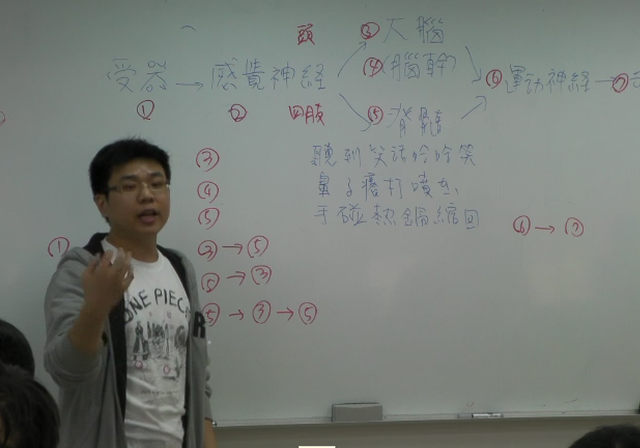 頭 ③大腦
受器→感覺神経 ④腦幹 ⑥運动神経→⑦
① ② 四肢 ⑤脊髓
③ 聽到笑話哈哈笑
④ 鼻子癢打噴嚏
⑤ 手碰熱鍋縮回
① ③→⑤ ⑥→⑦
⑤→③
⑤→③→⑤
ONE PIECE